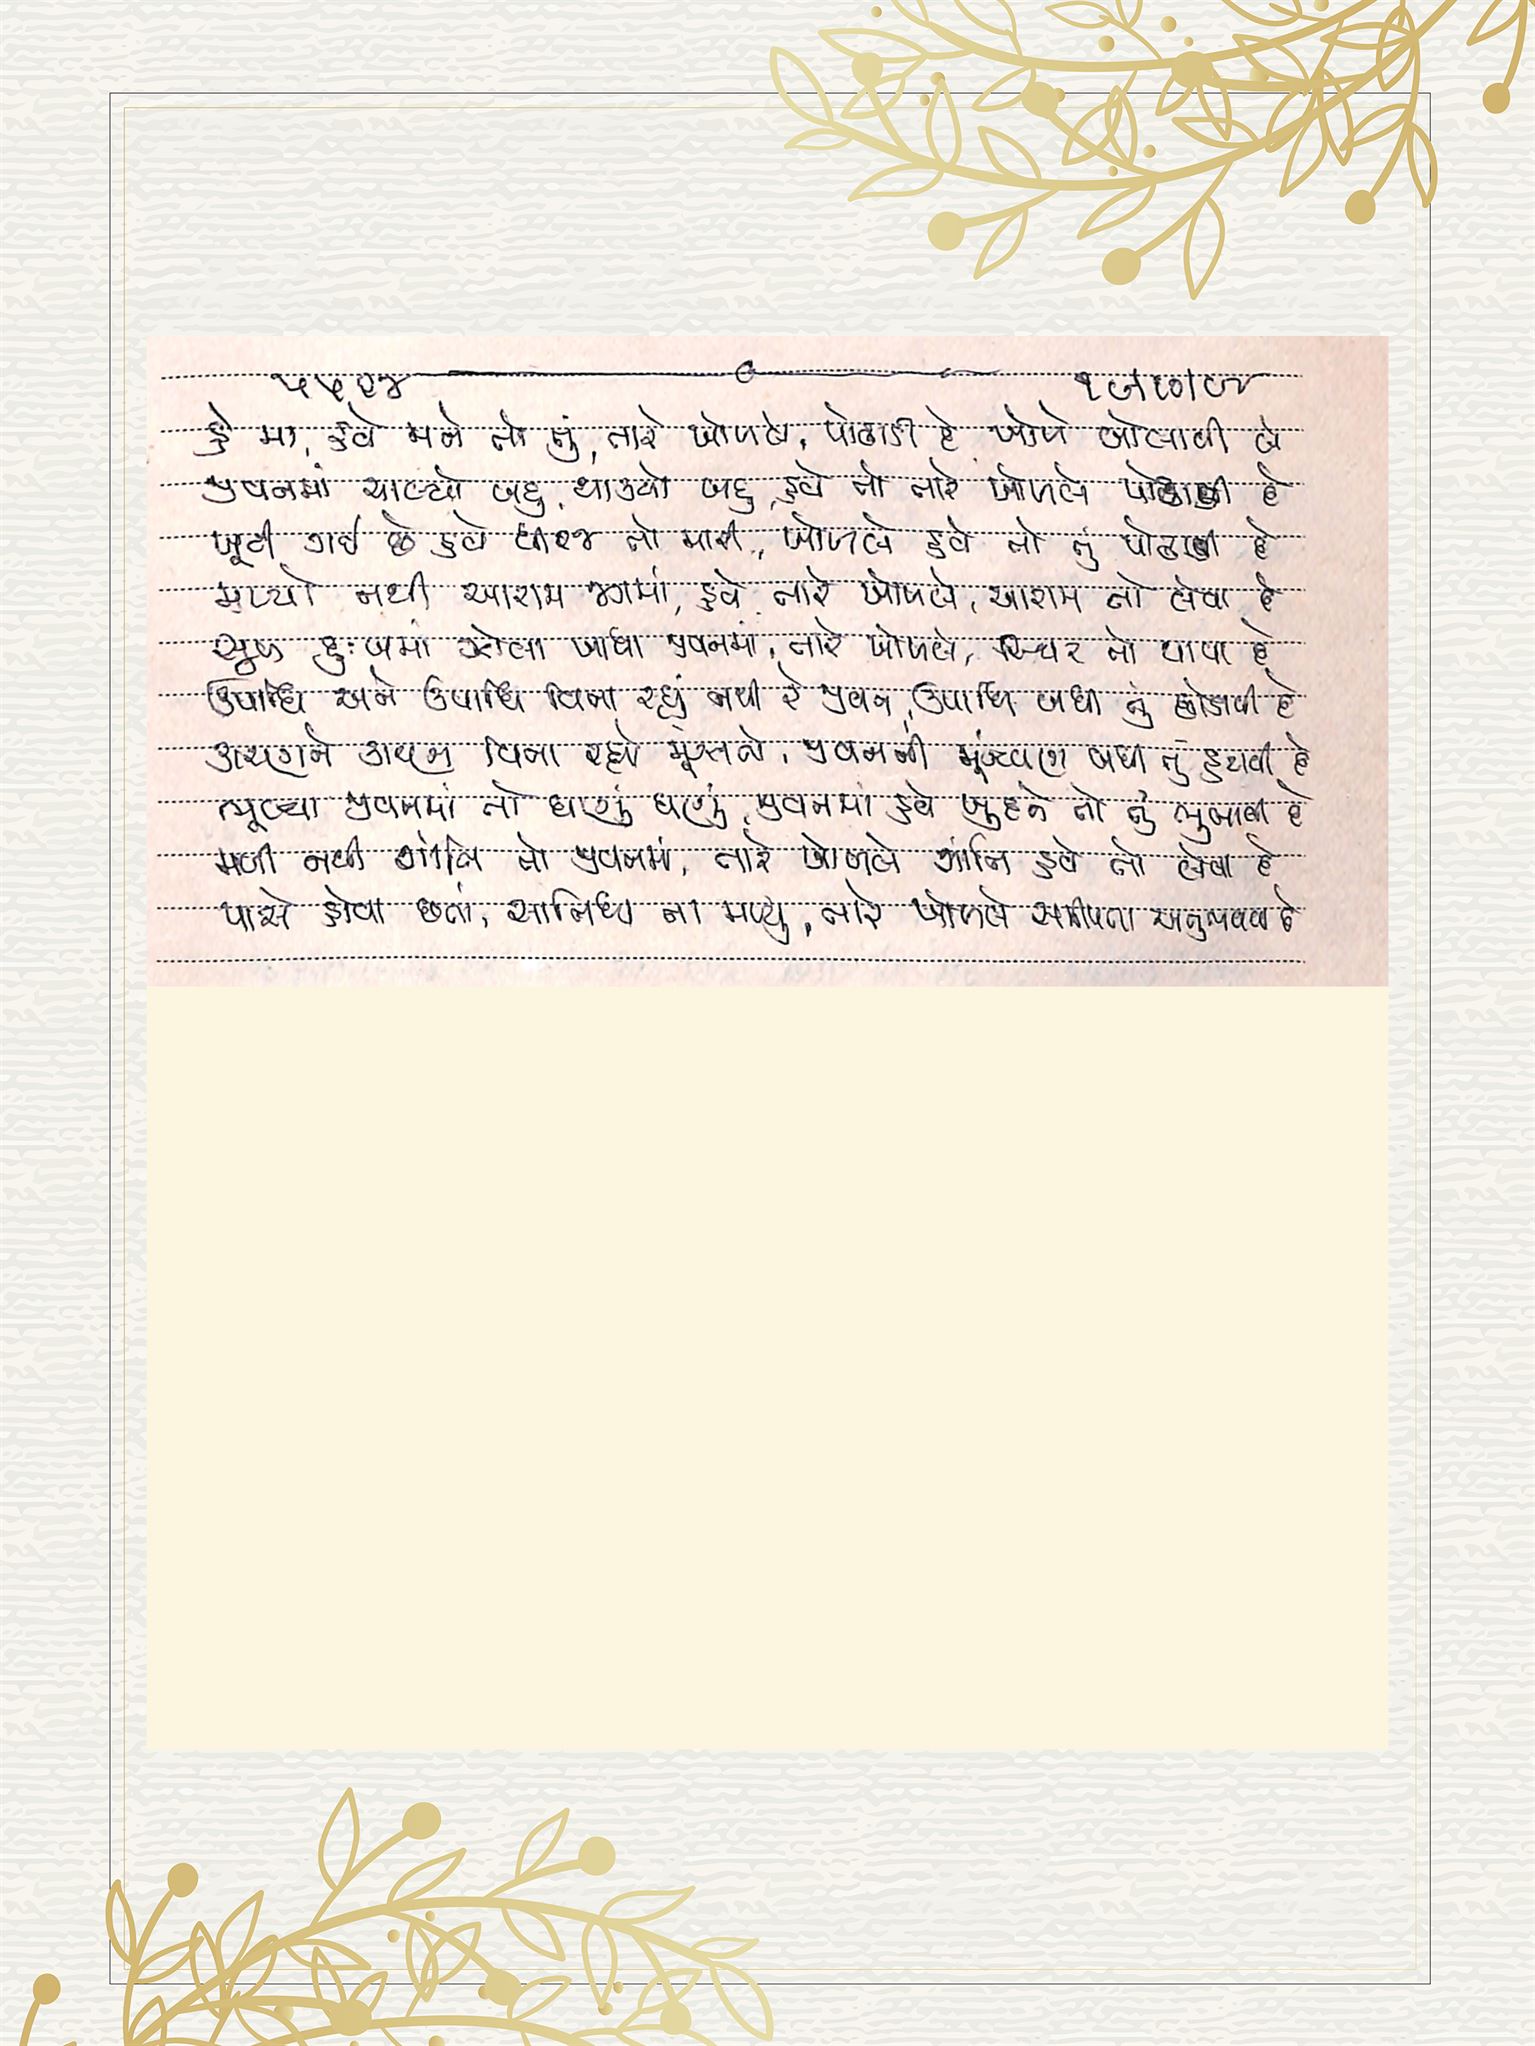 હે મા, હવે મને તો તું, તારે ખોળલે, પોઢાડી દે ખોળે બોલાવી લે
જીવનમાં ચાલ્યો બહુ, થાક્યો બહુ, હવે તો તારે ખોળલે પોઢાવી દે
ખૂટી ગઈ છે હવે ધીરજ તો મારી, ખોળલે હવે તો તું પોઢાવી દે
મળ્યો નથી આરામ જગમાં, હવે તારે ખોળલે, આરામ તો લેવા દે
સુખ દુઃખમાં ખાધા જીવનમાં, તારે ખોળલે, સ્થિર તો થાવા દે
ઉપાધિ અને ઉપાધિ વિના રહ્યું નથી રે જીવન, ઉપાધિ બધી તું છોડાવી દે
વિના રહ્યો મૂંઝાતો, જીવનની મૂંઝવણ બધી તું હટાવી દે
ભૂલ્યા જીવનમાં તો ઘણું ઘણું, જીવનમાં હવે ખુદને તો તું ભુલાવી દે
મળી નથી શાંતિ તો જીવનમાં, તારે ખોળલે શાંતિ હવે તો લેવા દે
પાસે હોવા છતાં, સાનિધ્ય ના મળ્યું, તારે ખોળલે સમીપતા અનુભવવા દે